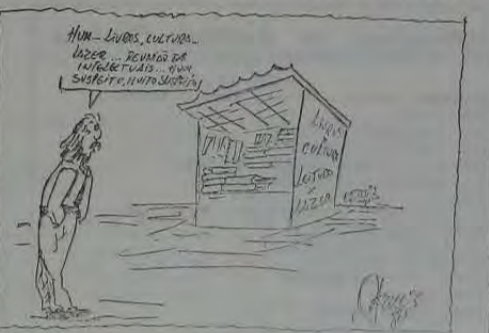 HUM... LIVROS, CULTURA...
LAZER... REUNIÃO DE
INTELECTUAIS... HUM
SUSPEITO, MUITO SUSPEITO!
LIVROS
CULTURA
LEITURA
LAZER